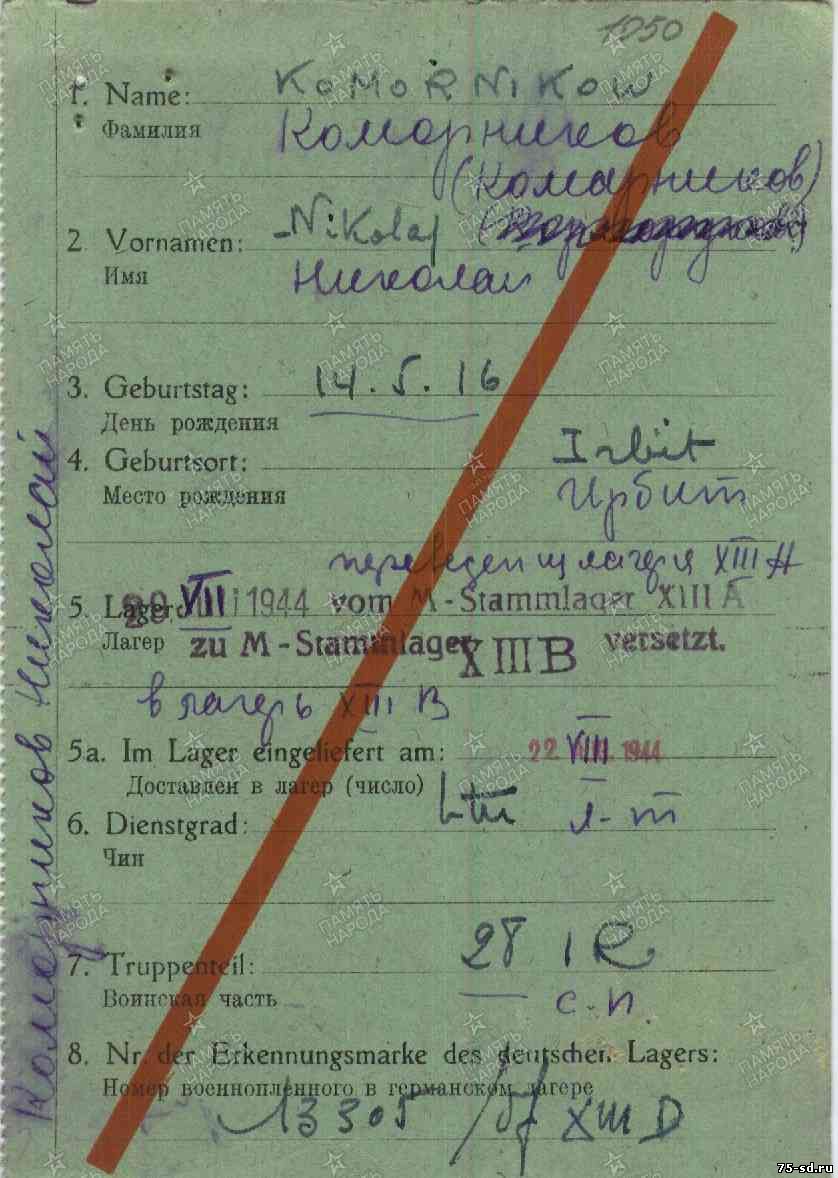 1050
1. Name: KOMORNIKOW
Фамилия Коморников
(Комарников)
2. Vornamen: Nikolaj
Имя Николай
3. Geburtstag: 14.5.16
День рождения
4. Geburtsort: Irbit
Место рождения Ирбит
переведен из лагеря XIII A
5. Lager VII 1944 vom M-Stammlager XIII A
Лагер zu M-Stammlager XIII B versetzt.
в лагерь XIII B
5a. Im Lager eingeliefert am: 22. VIII 1944
Доставлен в лагер (число)
6. Dienstgrad: Ltn л-т
Чин
7. Truppenteil: 28 IR
Воинская часть с.п.
8. Nr. der Erkennungsmarke des deutschen Lagers:
Номер военнопленного в германском лагере
13305 / XIII D
Коморников Николай
ПАМЯТЬ НАРОДА
75-sd.ru